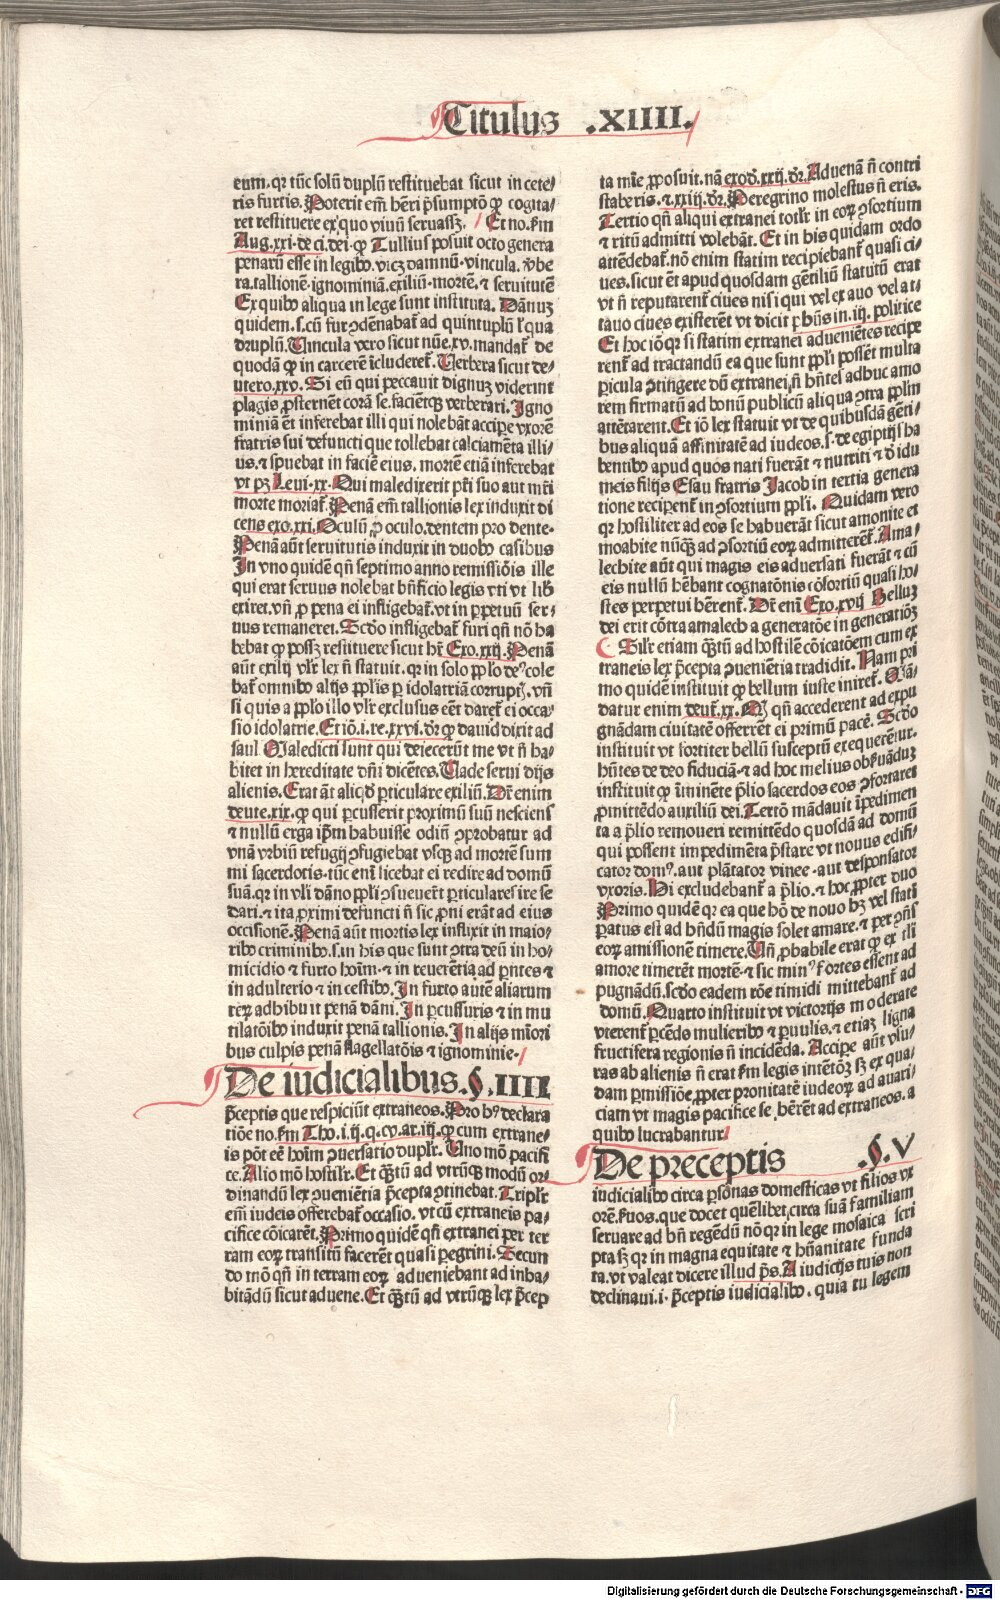 Titulus .XIIII.
eum. qꝛ tūc solū duplū restituebat sicut in cete⸗
ris furtis. Poterit em̄ h̄eri p̄sumptō ꝙ cogita⸗
ret restituere ex quo viuū seruassꝫ. Et no. ẜm
Aug. xxi. de ci. dei. ꝙ Tullius posuit octo genera
penarū esse in legibꝰ. vicꝫ damnū. vincula. v̄be
ra. tallionē. ignominiā. exiliū. mortē. ⁊ seruitutē
Ex quibꝰ aliqua in lege sunt instituta. Dānuꝫ
quidem. s. cū fur ꝯdēnabat᷑ ad quintuplū ł qua
druplū. Vincula vero sicut nūe. xv. mandat᷑ de
quodā ꝙ in carcerē īcluderet᷑. Verbera sicut de⸗
utero. xxv. Si eū qui peccauit dignuꝫ viderint
plagis ꝓsternent corā se. faciētqꝫ verberari. Igno
miniā ēt inferebat illi qui nolebāt accipe vxorē
fratris sui defuncti que tollebat calciamēta illi⸗
us. ⁊ spuebat in faciē eius. mortē etiā inferebat
vt pꝫ Leui. xx. Qui maledixerit pr̄i suo aut mr̄i
morte moriat᷑. Penā em̄ tallionis lex induxit di
cens exo. xxi. Oculū ꝓ oculo. dentem pro dente.
Penā aūt seruitutis induxit in duobꝰ casibus
In vno quidē qn̄ septimo anno remissiōis ille
qui erat seruus nolebat bn̄ficio legis vti vt lib̄
exiret. vn̄ ꝓ pena ei infligebat᷑. vt in ꝑpetuū ser⸗
uus remaneret. Scdo infligebat᷑ furi qn̄ nō ha
bebat ꝙ possꝫ restituere sicut hr̄ Exo. xxij. Penā
aūt exilij vl̓r lex n̄ statuit. qꝛ in solo ppl̓o deꝰ cole
bat᷑ omnibꝰ alijs ppl̓is ꝑ idolatriā corrupt̓. vn̄
si quis a ppl̓o illo vl̓r exclusus eēt daret᷑ ei occa⸗
sio idolatrie. Et iō. i. re. xxvi. dr̄ ꝙ dauid dixit ad
saul. Maledicti sunt qui deiecerūt me vt n̄ ha⸗
bitet in hereditate dn̄i dicētes. Vade serui dijs
alienis. Erat āt aliqd̓ ꝑticulare exiliū. Dr̄ enim
deute. xix. ꝙ qui ꝑcusserit proximū suū nesciens
⁊ nullū erga ip̄m habuisse odiū ꝯprobatur ad
vnā vrbiū refugij ꝯfugiebat vsqꝫ ad mortē sum
mi sacerdotis. tūc eni licebat ei redire ad domū
suā. qꝛ in vl̓i dāno ppl̓i ꝯsueuer̄t ꝑticulares ire se
dari. ⁊ ita ꝓximi defuncti n̄ sic ꝓni erāt ad eius
occisionē. Penā aūt mortis lex inflixit in maio⸗
ribꝰ criminibꝰ. s. in his que sunt ꝯtra deū in ho⸗
micidio ⁊ furto hoīm. ⁊ in reuerētia ad pn̄tes ⁊
in adulterio ⁊ in cestibꝰ. In furto autē aliarum
reꝝ adhibuit penā dāni. In ꝑcussuris ⁊ in mu
tilatōibꝰ induxit penā tallionis. In alijs mīori
bus culpis penā flagellatōis ⁊ ignominie.
De iudicialibus. §. IIII
p̄ceptis que respiciūt extraneos. Pro hꝰ declara
tiōe no. ẜm Tho. i. ij. q. cv. ar. iij. ꝙ cum extrane⸗
is pōt eē hoīm ꝯuersatio dupl̓r. Uno mō pacifi
ce. Alio mō hostil̓r. Et qͣꝫtū ad vtrūqꝫ modū or⸗
dinandū lex ꝯueniētia p̄cepta ꝯtinebat. Tripl̓r
em̄ iudeis offerebat᷑ occasio. vt cū extraneis pa⸗
cifice cōicarēt. Primo quidē qn̄ extranei per ter
ram eoꝝ transitū facerēt quasi pegrini. Secun
do mō qn̄ in terram eoꝝ adueniebant ad inha⸗
bitādū sicut aduene. Et qͣꝫtū ad vtrūqꝫ lex p̄cep
ta mīe ꝓposuit. nā exod. xxij. dr̄. Aduenā n̄ contri
staberis. ⁊ xxiij. dr̄. Peregrino molestus n̄ eris.
Tertio qn̄ aliqui extranei totl̓r in eoꝝ ꝯsortium
⁊ ritū admitti volebāt. Et in his quidam ordo
attēdebat᷑. nō enim statim recipiebant᷑ quasi ci⸗
ues. sicut ēt apud quosdam gētiliū statutū erat
vt n̄ reputarent᷑ ciues nisi qui vel ex auo vel a t⸗
tauo ciues existerēt vt dicit ph̄us in. iij. politice
Et hoc iō qꝛ si statim extranei adueniētes recipe
rent᷑ ad tractandū ea que sunt ppl̓i possēt multa
ꝑicula ꝯtingere dū extranei n̄ hn̄tes adhuc amo
rem firmatū ad bonū publicū aliqua ꝯtra ppl̓m
attētarent. Et iō lex statuit vt de quibusdā gēti⸗
bus aliquā affinitatē ad iudeos. s. de egiptijs ha
bentibꝰ apud quos nati fuerāt ⁊ nutriti ⁊ d̓ idu
meis filijs Esau fratris Jacob in tertia genera
tione recipent᷑ in ꝯsortium ppl̓i. Quidam vero
qꝛ hostiliter ad eos se habuerāt sicut amonite et
moabite nūqͣꝫ ad ꝯsortiū eoꝝ admitterēt᷑. Ama⸗
lechite aūt qui magis eis aduersati fuerāt ⁊ cū
eis nullū h̄ebant cognatōnis cōsortiū quasi ho⸗
stes perpetui h̄erent᷑. Dr̄ eni Exo. xvij Belluꝫ
dei erit cōtra amalech a generatōe in generatiōꝫ
Sil̓r etiam qͣꝫtū ad hostilē cōicatōem cum ex
traneis lex p̄cepta ꝯueniētia tradidit. Nam pri
mo quidē instituit ꝙ bellum iuste iniret᷑. Mā⸗
datur enim deut̓. xx. Ꝙ qn̄ accederent ad expu
gnādam ciuitatē offerrēt ei primū pacē. Scdo
instituit vt fortiter bellū susceptū exequerēt᷑ur.
hn̄tes de deo fiduciā. ⁊ ad hoc melius obẜuāduꝫ
instituit ꝙ īminēte p̄lio sacerdos eos ꝯfortaret
ꝓmittēdo auxiliū dei. Tertō mādauit īpedimen
ta a p̄lio remoueri remittēdo quosdā ad domū
qui possent impedimēta p̄stare vt nouus edifi⸗
cator domꝰ. aut plātator vinee. aut desponsator
vxoris. Hi excludebant᷑ a p̄lio. ⁊ hoc ꝓpter duo
Primo quidē qꝛ ea que hō de nouo hꝫ vel stati
paratus est ad hn̄dū magis solet amare. ⁊ per ꝯn̄s
eoꝝ amissionē timere. Vn̄ ꝓbabile erat ꝙ ex tl̓i
amore timerēt mortē. ⁊ sic minꝰ fortes essent ad
pugnādū. scdo eadem rōe timidi mittebant᷑ ad
domū. Quarto instituit vt victorijs moderate
vterent᷑ ꝑcēdo mulieribꝰ ⁊ ꝑuulis. ⁊ etiaꝫ ligna
fructifera regionis n̄ incidēda. Accipe aūt vsu⸗
ras ab alienis n̄ erat ẜm legis intētōꝫ sꝫ ex qua⸗
dam ꝑmissiōe. ꝓpter pronitatē iudeoꝝ ad auari⸗
ciam vt magis pacifice se h̄erēt ad extraneos. a
quibꝰ lucrabantur.
De preceptis .§. V
iudicialibꝰ circa ꝑsonas domesticas vt filios vx
orē. ẜuos. que docet quēlibet circa suā familiam
seruare ad bn̄ regēdū nō qꝛ in lege mosaica scri
pta sꝫ qꝛ in magna equitate ⁊ hūanitate funda
ta. vt valeat dicere illud ps̄. A iudicijs tuis non
declinaui. i. p̄ceptis iudicialibꝰ. quia tu legem
Digitalisierung gefördert durch die Deutsche Forschungsgemeinschaft - DFG